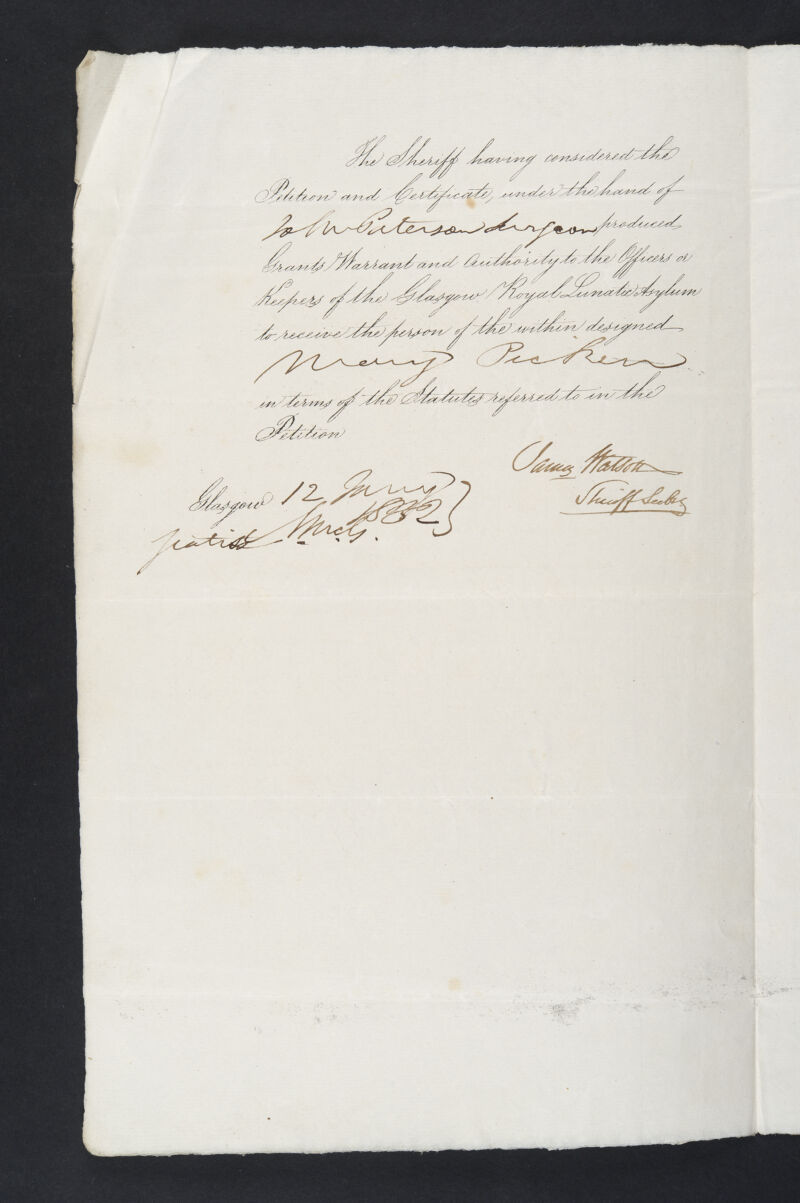 The Sheriff having considered the
Petition and Certificate, under the hand of
John Paterson Surgeon produced
Grants Warrant and Authority to the Officers or
Keepers of the Glasgow Royal Lunatic Asylum
to receive the person of the within designed
Mary Picken
in terms of the Statutes referred to in the
Petition
James Watson
Sheriff Subst
Glasgow 12 Jany
1832
gratis